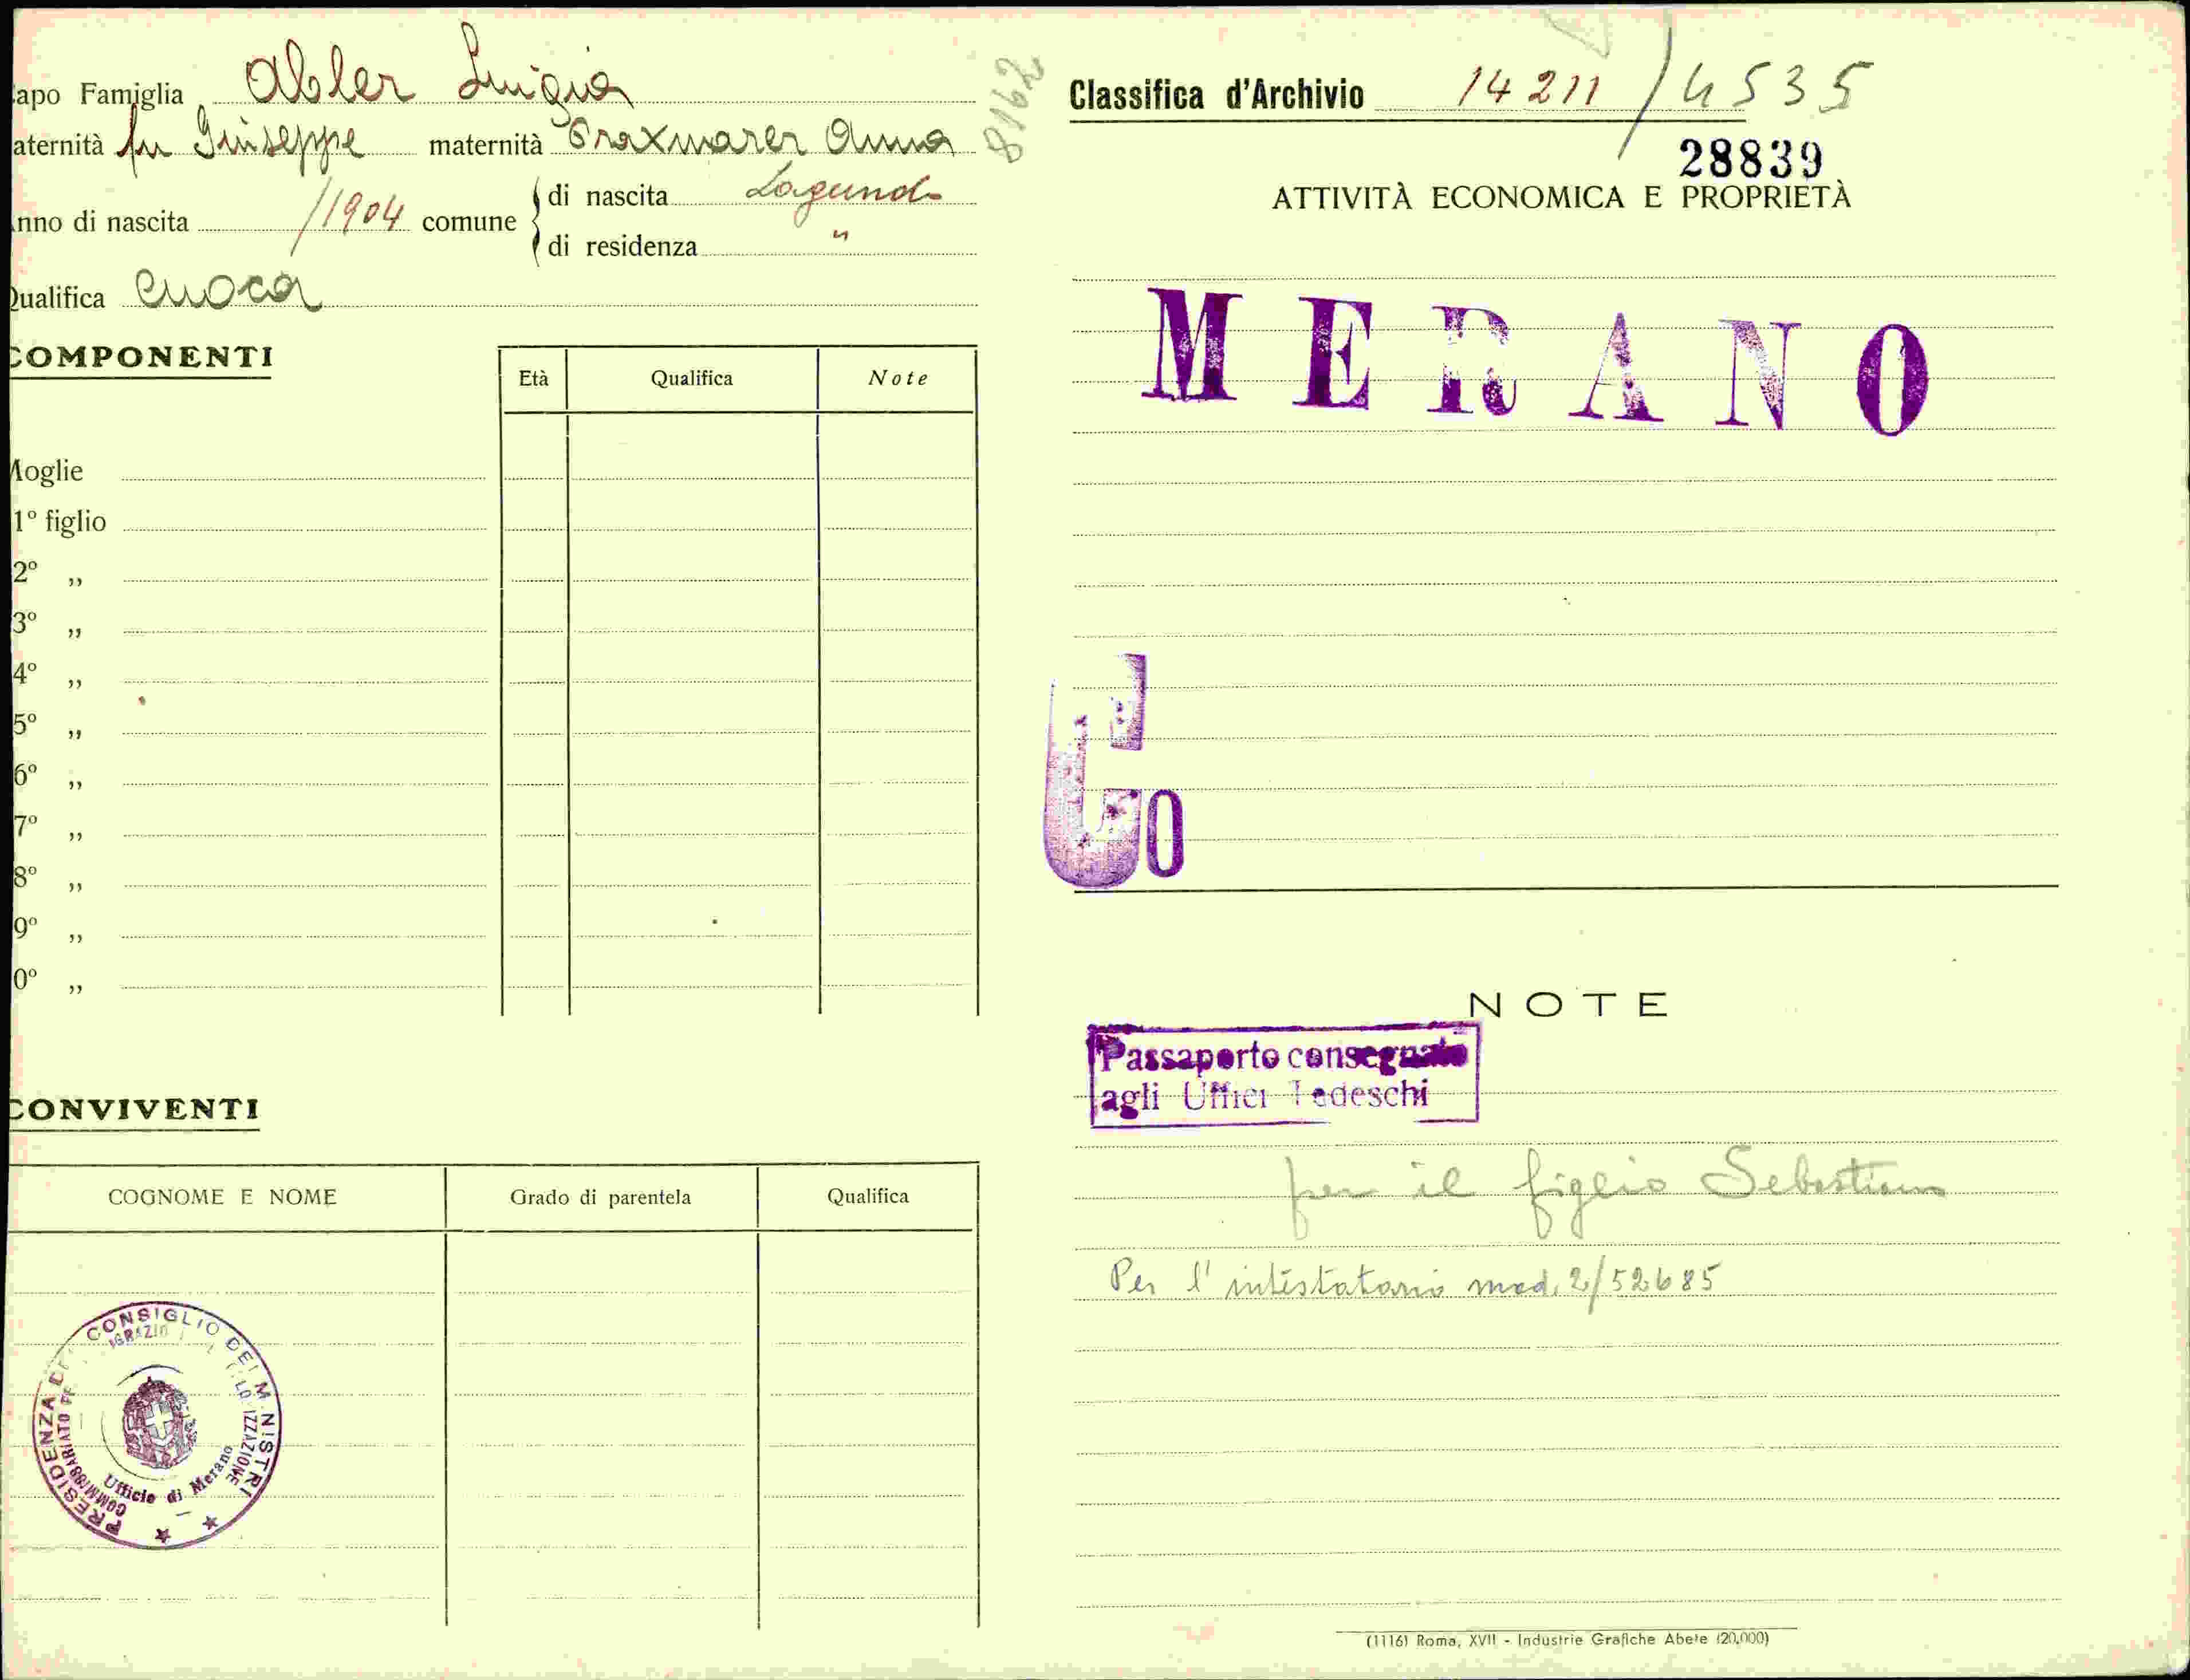 apo Famiglia Abler Luigia
aternità fu Giuseppe maternità Traxmarer Anna
nno di nascita /1904 comune di nascita Lagundo
di residenza "
Qualifica Cuoca
COMPONENTI
Età Qualifica Note
Moglie
1° figlio
2° „
3° „
4° „
5° „
6° „
7° „
8° „
9° „
0° „
CONVIVENTI
COGNOME E NOME Grado di parentela Qualifica
PRESIDENZA DEL CONSIGLIO DEI MINISTRI
COMMISSARIATO PER
Ufficio di Merano
8162
Classifica d'Archivio 14211 / 4535
28839
ATTIVITÀ ECONOMICA E PROPRIETÀ
MERANO
NOTE
Passaporto consegnato
agli Uffici Tedeschi
per il figlio Sebastiano
Per l'intestatario mod. 2/52685
(1116) Roma, XVII - Industrie Grafiche Abete (20,000)